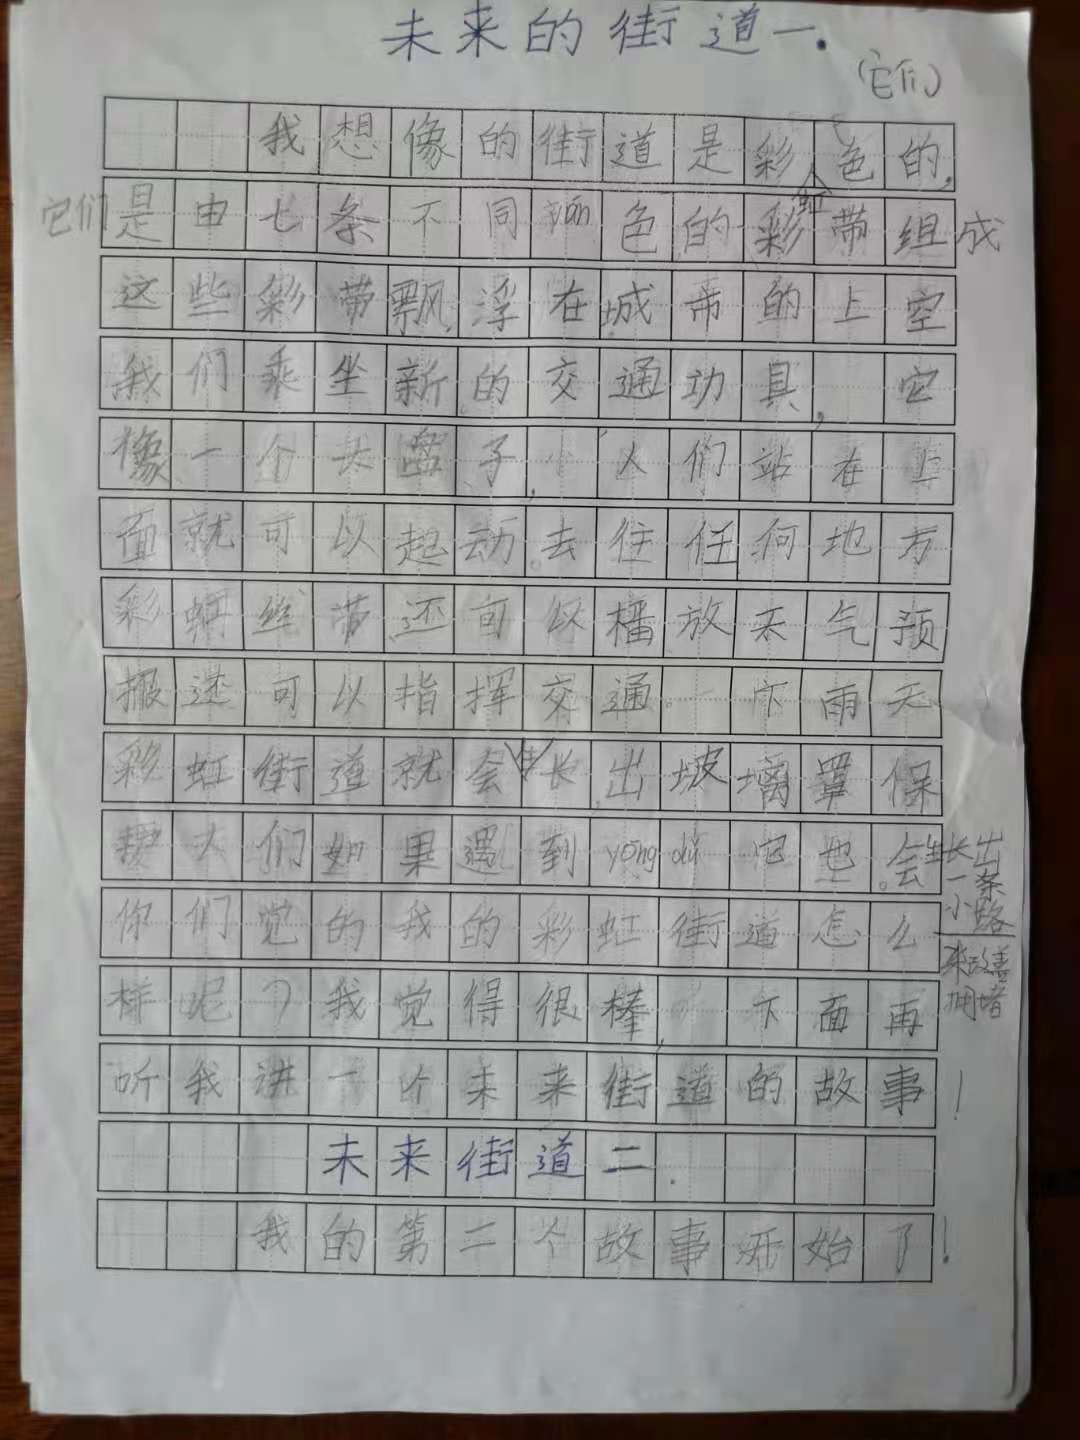 未来的街道一.
(它们)
我想像的街道是彩色的,
它们是由七条不同 色的彩虹带组成
这些彩带飘浮在城市的上空
我们乘坐新的交通功具,它
像一个大盘子,人们站在上
面就可以起动。去往任何地方
彩虹丝带还可以播放天气预
报还可以指挥交通。下雨天
彩虹街道就会生长出坡璃罩保
人们如果遇到yōng dǔ它也会。生长出
一条
小路
来改善
拥堵
你们觉的我的彩虹街道怎么
样呢?我觉得很棒,下面再
听我讲一个未来街道的故事!
未来街道二.
我的第二个故事开始了!